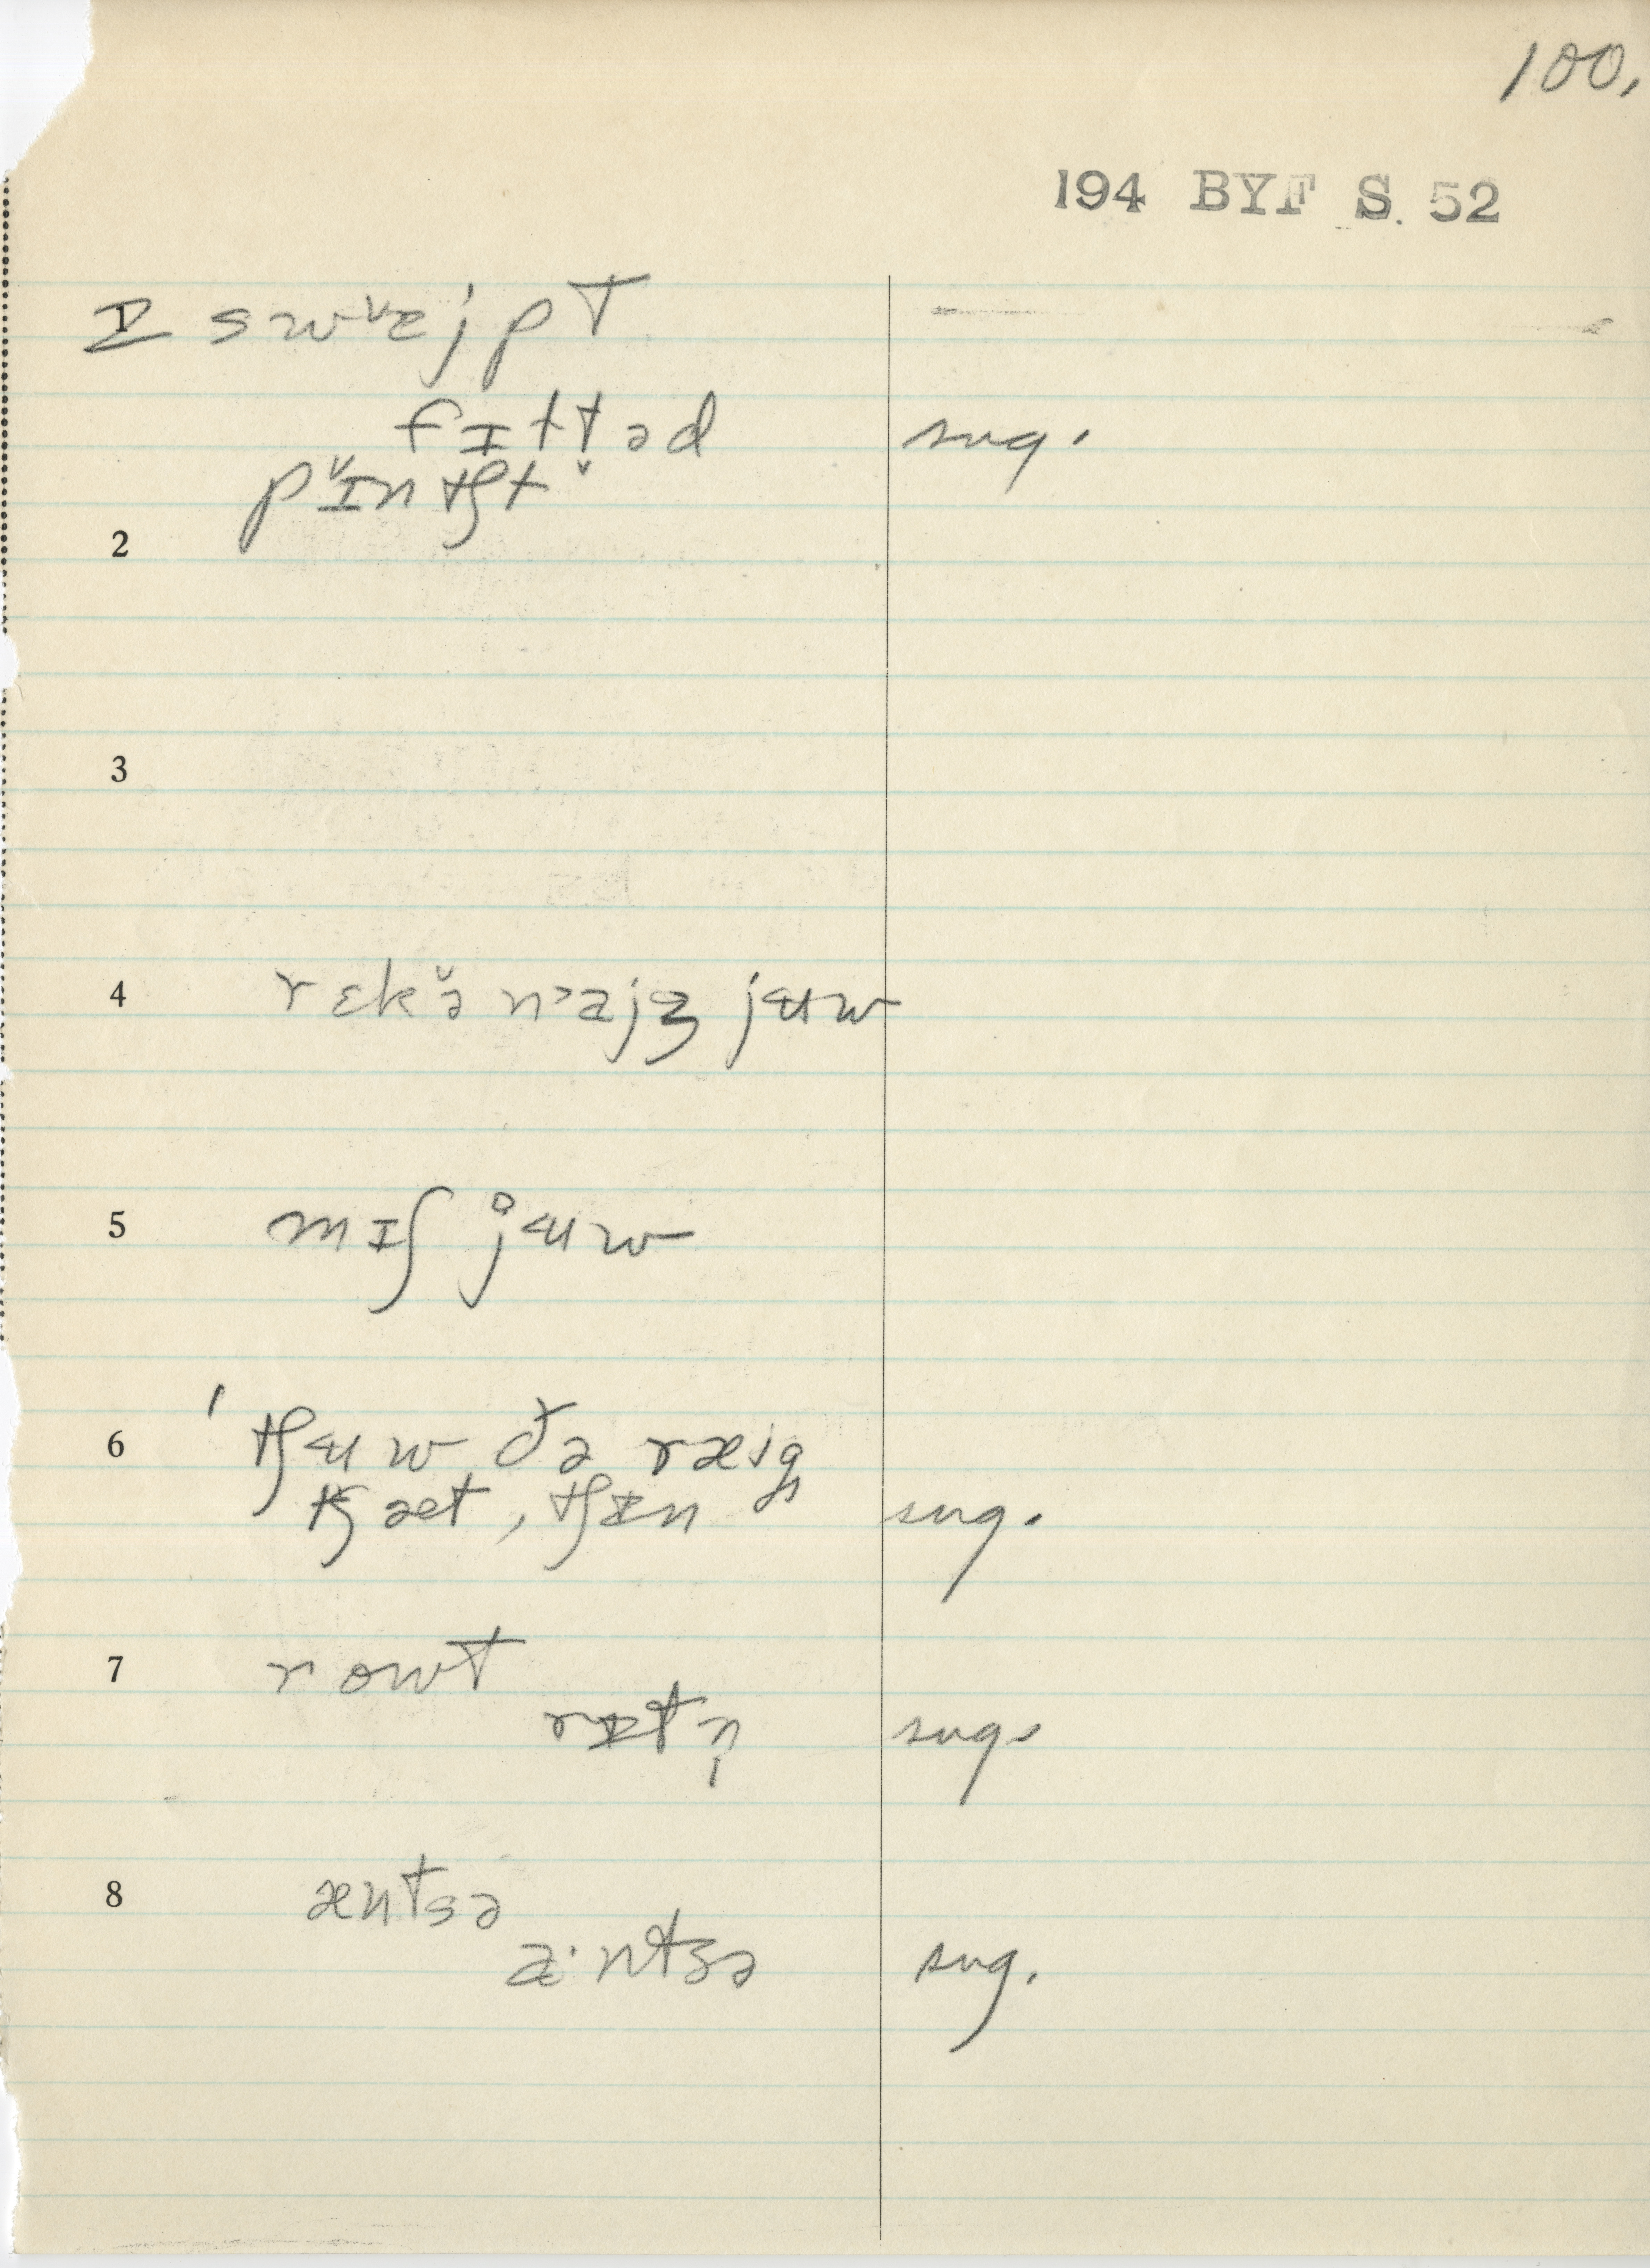 100.
194 BYF S. 52
swˇɛjpt
fɪtt̬əd sug.
pˇɪntʃt
2
3
4 rɛkˇə nᵊajʒ jɯw
5 mɪʃ j̊ɯw
6 ˈtʃɯw ðə ræɪg̥
tʃæt, tʃɪn sug.
7 rowt
rɪtn̩ sug.
8 æntsə
a·ntsə sug.